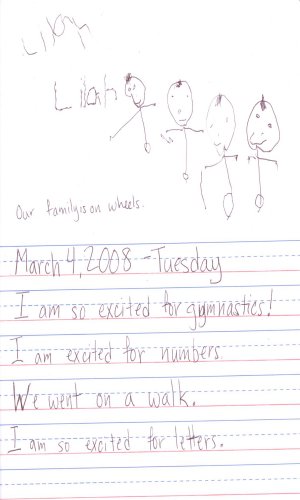 Lilah
Lilah
Our family is on wheels.
March 4, 2008 - Tuesday
I am so excited for gymnastics!
I am excited for numbers.
We went on a walk.
I am so excited for letters.